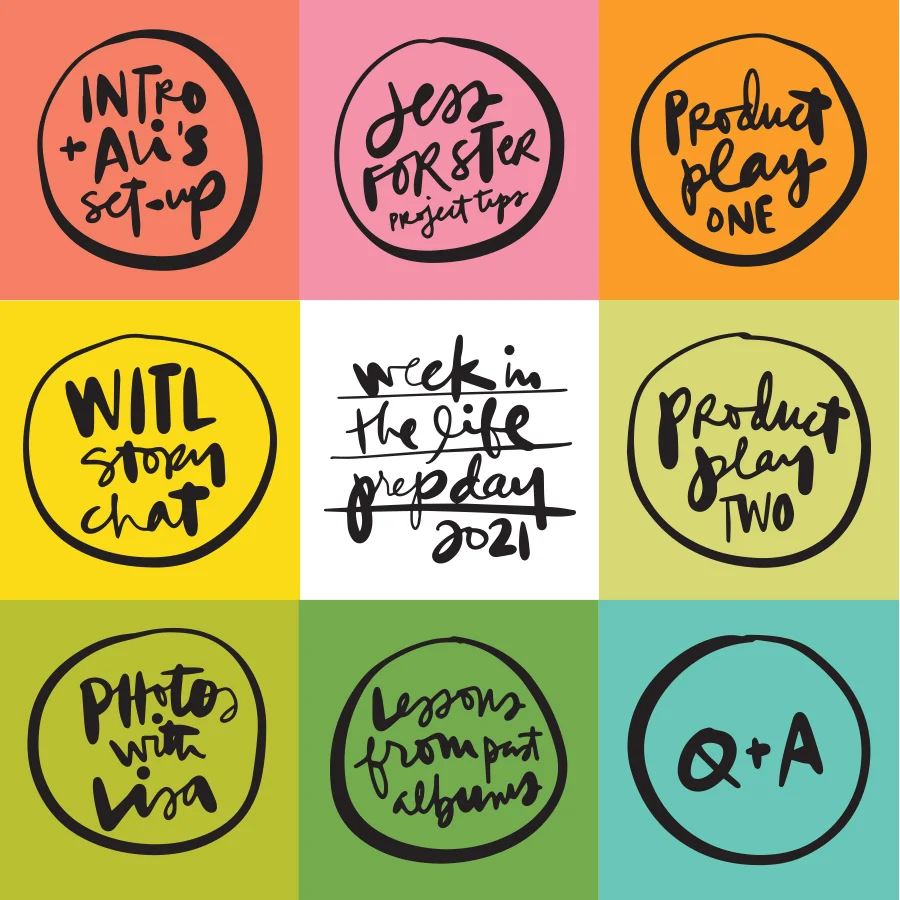 INTRO
+ Ali's
set-up
Jess
FORSTER
project tips
Product
play
ONE
WITL
story
chat
week in
the life
prep day
2021
Product
play
TWO
PHotos
with
Lisa
Lessons
from past
albums
Q + A